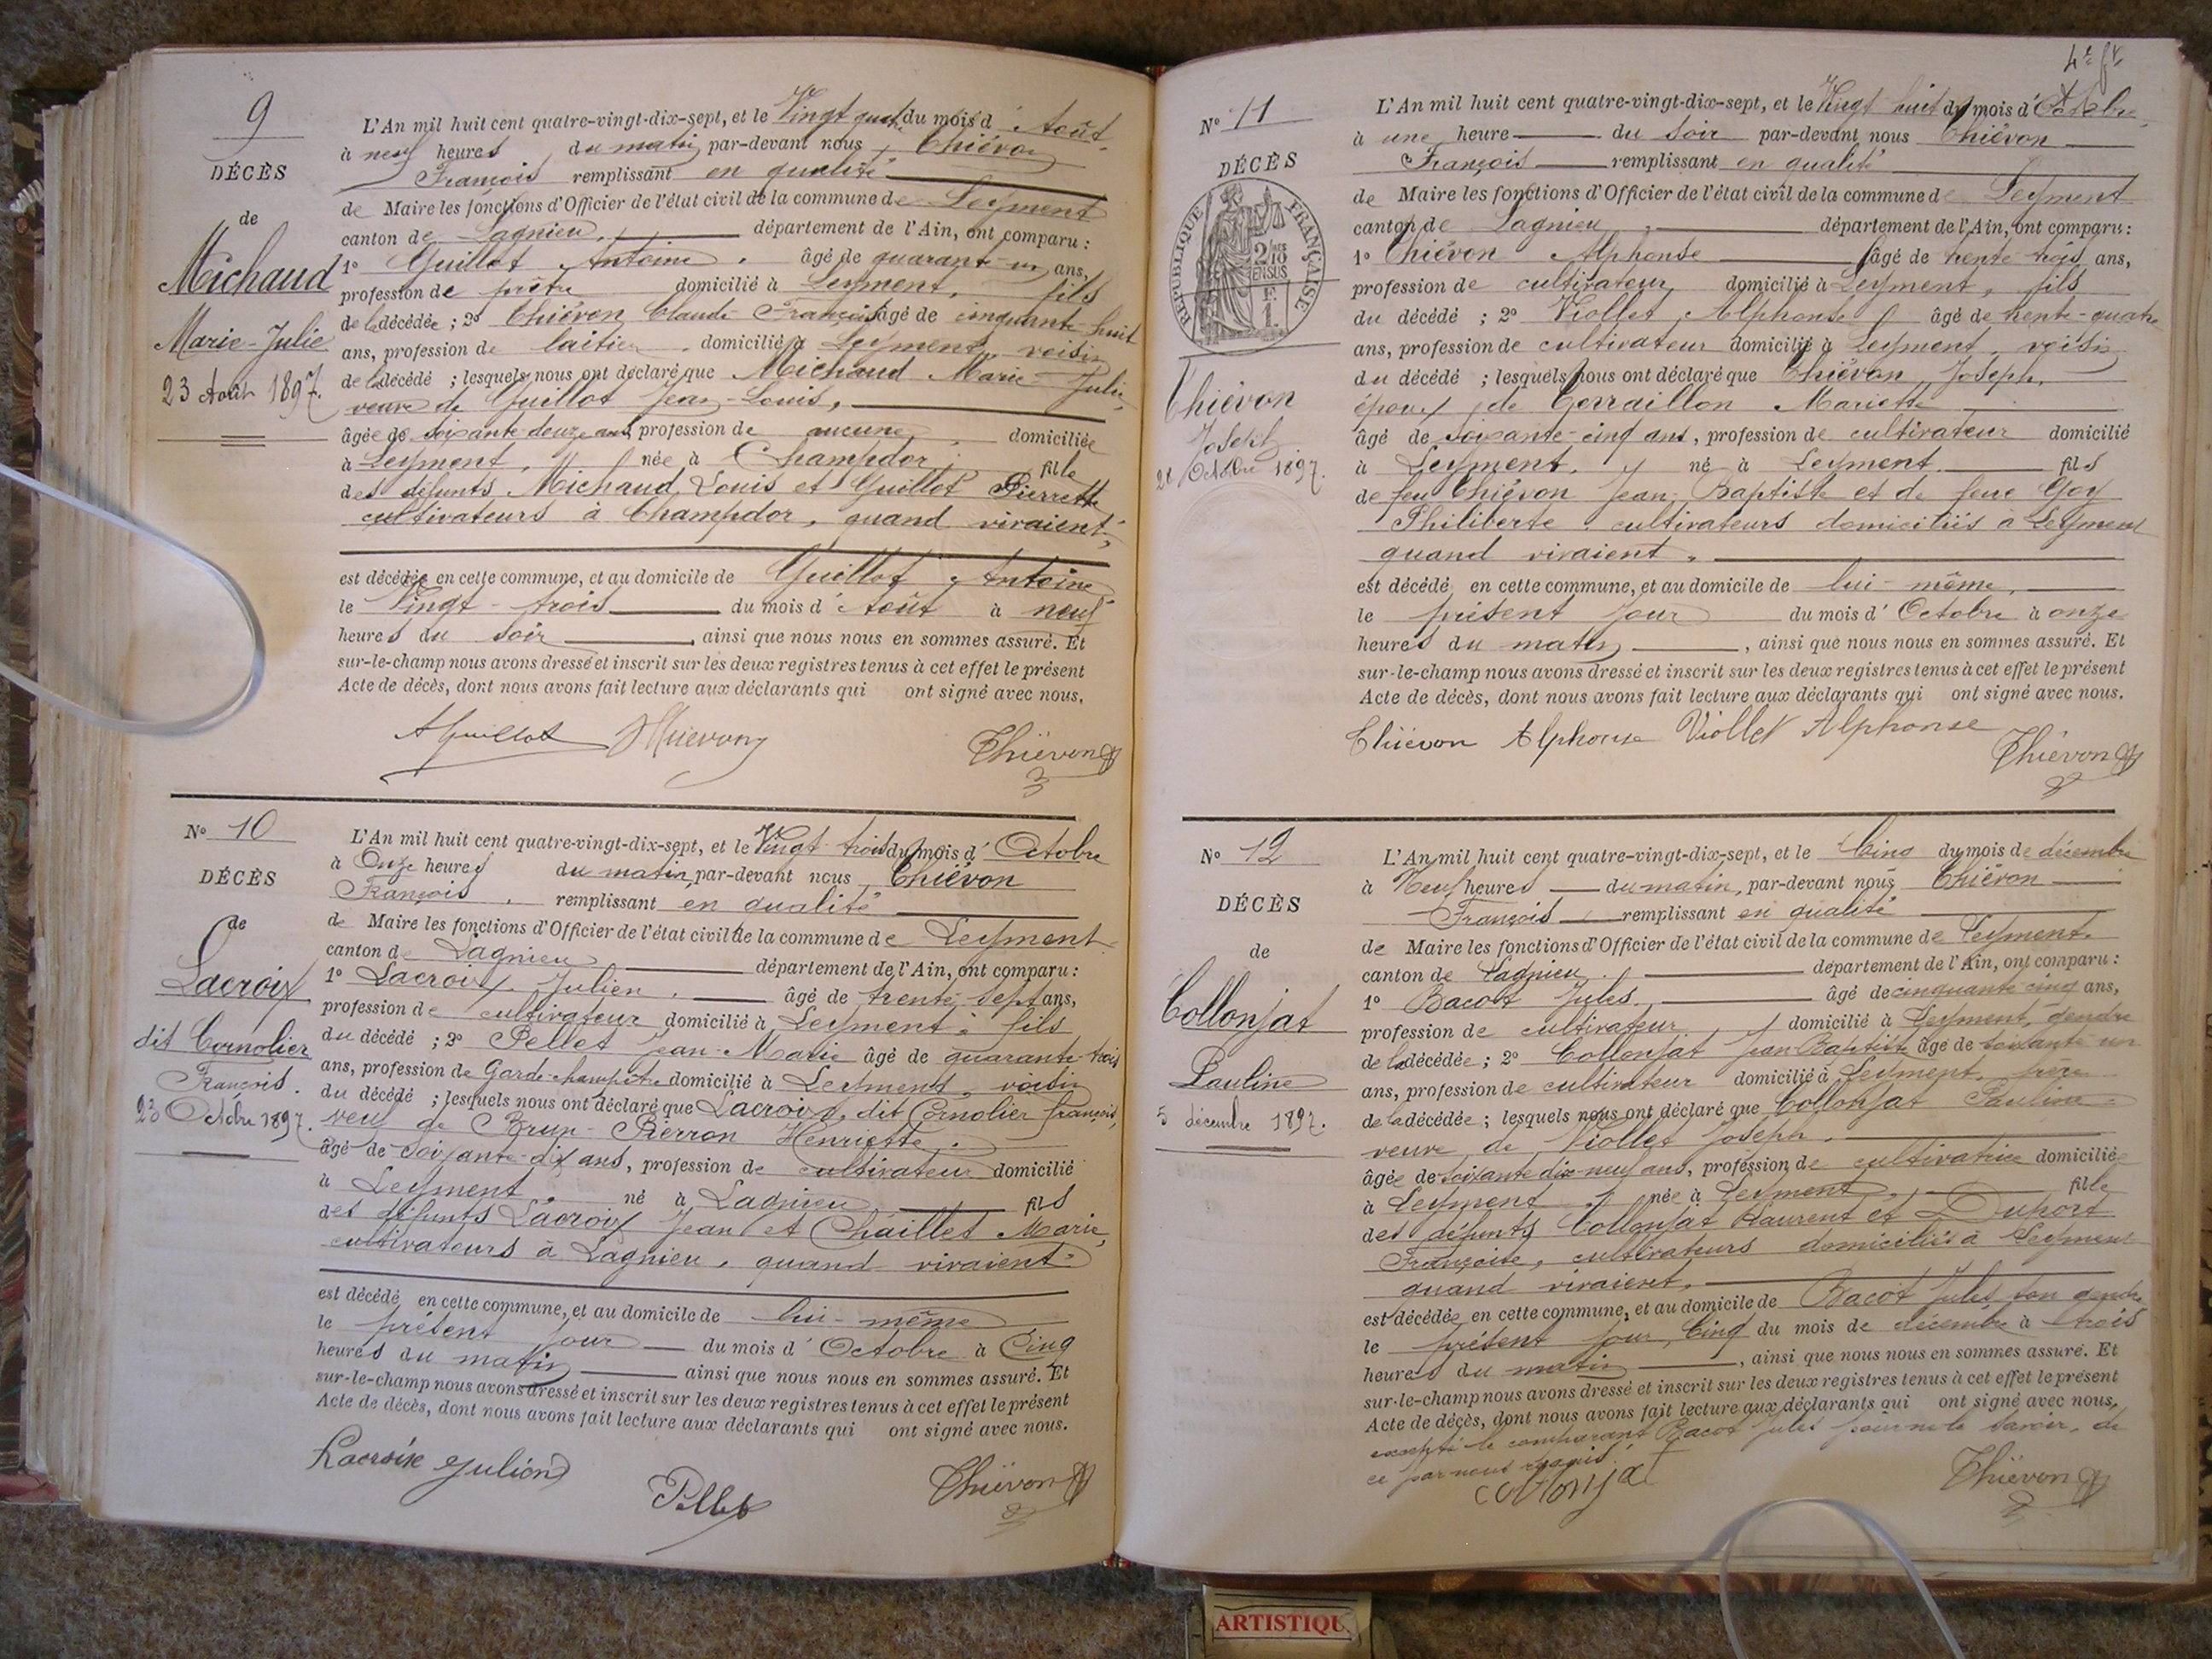 9
DÉCÈS
de
Michaud
Marie-Julie
23 Août 1897.
L'An mil huit cent quatre-vingt-dix-sept, et le Vingt quatre du mois d'Août
à neuf heures du matin par-devant nous Thiévon
François remplissant en qualité
de Maire les fonctions d'Officier de l'état civil de la commune de Leyment
canton de Lagnieu, département de l'Ain, ont comparu :
1º Guillot Antoine, âgé de quarante-un ans,
profession de prêtre domicilié à Leyment, fils
de la décédée ; 2º Thiévon Claude François âgé de cinquante-huit
ans, profession de laitier, domicilié à Leyment, voisin
de la décédé ; lesquels nous ont déclaré que Michaud Marie-Julie,
veuve de Guillot Jean-Louis,
âgée de soixante-douze ans, profession de aucune, domiciliée
à Leyment, née à Champdor, fille
des défunts Michaud Louis et Guillot Pierrette
cultivateurs à Champdor, quand vivaient,
est décédée en cette commune, et au domicile de Guillot Antoine
le Vingt-trois du mois d'Août à neuf
heures du soir, ainsi que nous nous en sommes assuré. Et
sur-le-champ nous avons dressé et inscrit sur les deux registres tenus à cet effet le présent
Acte de décès, dont nous avons fait lecture aux déclarants qui ont signé avec nous.
A Guillot Thiévon Thiévon
Nº 10
DÉCÈS
de
Lacroix
dit Cornolier
François.
23 Octobre 1897.
L'An mil huit cent quatre-vingt-dix-sept, et le Vingt trois du mois d'Octobre
à Onze heures du matin, par-devant nous Thiévon
François, remplissant en qualité
de Maire les fonctions d'Officier de l'état civil de la commune de Leyment
canton de Lagnieu département de l'Ain, ont comparu :
1º Lacroix Julien, âgé de trente sept ans,
profession de cultivateur domicilié à Leyment, fils
du décédé ; 2º Pellet Jean-Marie âgé de quarante-trois
ans, profession de Garde-champêtre domicilié à Leyment, voisin
du décédé ; lesquels nous ont déclaré que Lacroix, dit Cornolier françois,
veuf de Brun-Pierron Henriette,
âgé de soixante-dix ans, profession de cultivateur domicilié
à Leyment, né à Lagnieu fils
des défunts Lacroix Jean et Chaillet Marie,
cultivateurs à Lagnieu, quand vivaient
est décédé en cette commune, et au domicile de lui-même
le présent jour du mois d'Octobre à Cinq
heures du matin ainsi que nous nous en sommes assuré. Et
sur-le-champ nous avons dressé et inscrit sur les deux registres tenus à cet effet le présent
Acte de décès, dont nous avons fait lecture aux déclarants qui ont signé avec nous.
Lacroix Julien Pellet Thiévon
Nº 11
DÉCÈS
RÉPUBLIQUE FRANÇAISE
Thiévon
Joseph
28 Octobre 1897.
L'An mil huit cent quatre-vingt-dix-sept, et le Vingt huit du mois d'Octobre
à une heure du soir par-devant nous Thiévon
François remplissant en qualité
de Maire les fonctions d'Officier de l'état civil de la commune de Leyment
canton de Lagnieu, département de l'Ain, ont comparu :
1º Thiévon Alphonse âgé de trente trois ans,
profession de cultivateur domicilié à Leyment, fils
du décédé ; 2º Viollet Alphonse âgé de trente-quatre
ans, profession de cultivateur domicilié à Leyment, voisin
du décédé ; lesquels nous ont déclaré que Thiévon Joseph,
époux de Gerraillon Mariette
âgé de soixante-cinq ans, profession de cultivateur domicilié
à Leyment, né à Leyment fils
de feu Thiévon Jean-Baptiste et de feue Goy
Philiberte, cultivateurs domiciliés à Leyment
quand vivaient,
est décédé en cette commune, et au domicile de lui-même,
le présent jour du mois d'Octobre à onze
heures du matin, ainsi que nous nous en sommes assuré. Et
sur-le-champ nous avons dressé et inscrit sur les deux registres tenus à cet effet le présent
Acte de décès, dont nous avons fait lecture aux déclarants qui ont signé avec nous.
Thiévon Alphonse Viollet Alphonse Thiévon
Nº 12
DÉCÈS
de
Collonjat
Pauline
5 décembre 1897.
L'An mil huit cent quatre-vingt-dix-sept, et le Cinq du mois de décembre
à Neuf heures du matin, par-devant nous Thiévon
François remplissant en qualité
de Maire les fonctions d'Officier de l'état civil de la commune de Leyment
canton de Lagnieu, département de l'Ain, ont comparu :
1º Bacot Jules, âgé de cinquante cinq ans,
profession de cultivateur, domicilié à Leyment, gendre
de la décédée ; 2º Collonjat Jean Baptiste âgé de soixante un
ans, profession de cultivateur domicilié à Leyment, frère
de la décédée ; lesquels nous ont déclaré que Collonjat Pauline
veuve de Viollet Joseph,
âgée de soixante dix-neuf ans, profession de cultivatrice domiciliée
à Leyment, née à Leyment, fille
des défunts Collonjat Laurent et Duport
Françoise, cultivateurs domiciliés à Leyment
quand vivaient,
est décédée en cette commune, et au domicile de Bacot Jules, son gendre
le présent jour, Cinq du mois de décembre à trois
heures du matin, ainsi que nous nous en sommes assuré. Et
sur-le-champ nous avons dressé et inscrit sur les deux registres tenus à cet effet le présent
Acte de décès, dont nous avons fait lecture aux déclarants qui ont signé avec nous,
excepté le comparant Bacot Jules pour ne le savoir, de
ce par nous requis.
collonjat Thiévon
ARTISTIQU